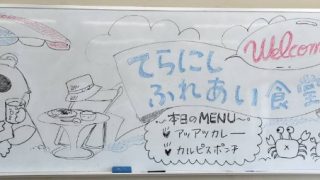 Welcome
てらにし
ふれあい食堂
本日のMENU
アツアツカレー
カルピスポンチ